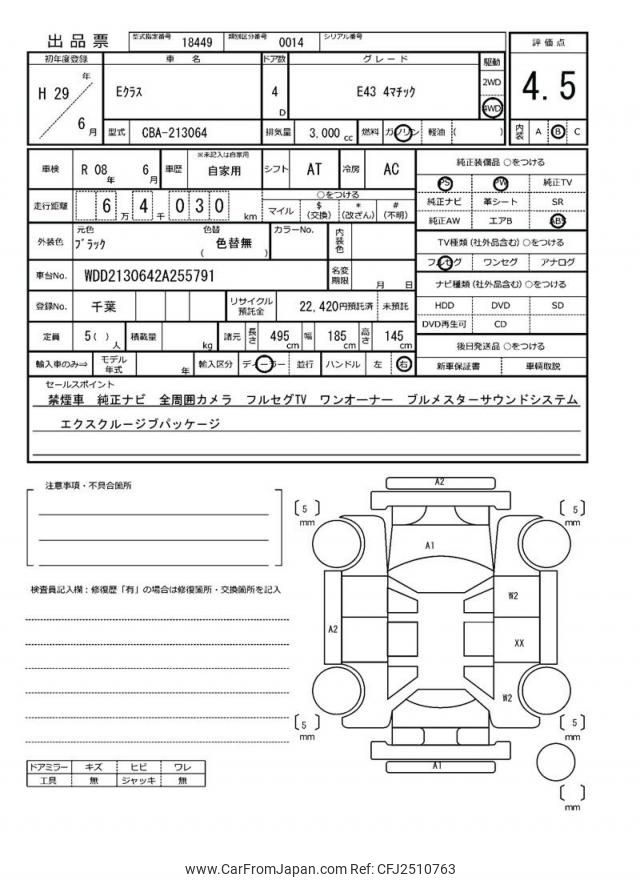 出品票 型式指定番号 18449 類別区分番号 0014 シリアル番号
評価点
4.5
初年度登録 車名 ドア数 グレード 駆動
H 29 年 6 月 Eクラス 4 D E43 4マチック 2WD 4WD
型式 CBA-213064 排気量 3,000 cc 燃料 ガソリン 軽油 ( ) 内装 A B C
車検 R 08 年 6 月 車歴 ※未記入は自家用 自家用 シフト AT 冷房 AC
純正装備品 ○をつける
PS PW 純正TV
走行距離 6 万 4 千 0 3 0 km ○をつける
マイル $ (交換) * (改ざん) # (不明)
純正ナビ 革シート SR
純正AW エアB ABS
外装色 元色 ブラック 色替 色替無 ( ) カラーNo. 内装色
TV種類 (社外品含む) ○をつける
フルセグ ワンセグ アナログ
車台No. WDD2130642A255791 名変期限 月 日
ナビ種類 (社外品含む) ○をつける
HDD DVD SD
DVD再生可 CD
登録No. 千葉 リサイクル預託金 22,420円預託済 未預託
定員 5( ) 人 積載量 kg 諸元 長さ 495 cm 幅 185 cm 高さ 145 cm
後日発送品 ○をつける
新車保証書 車輌取説
輸入車のみ⇒ モデル年式 年 輸入区分 ディーラー 並行 ハンドル 左 右
セールスポイント
禁煙車 純正ナビ 全周囲カメラ フルセグTV ワンオーナー ブルメスターサウンドシステム
エクスクルージブパッケージ
注意事項・不具合箇所
検査員記入欄：修復歴「有」の場合は修復箇所・交換箇所を記入
A2
[ 5 ] mm
[ 5 ] mm
A1
W2
A2
XX
W2
[ 5 ] mm
[ 5 ] mm
A1
[ ] mm
ドアミラー キズ ヒビ ワレ
工具 無 ジャッキ 無
www.CarFromJapan.com Ref: CFJ2510763